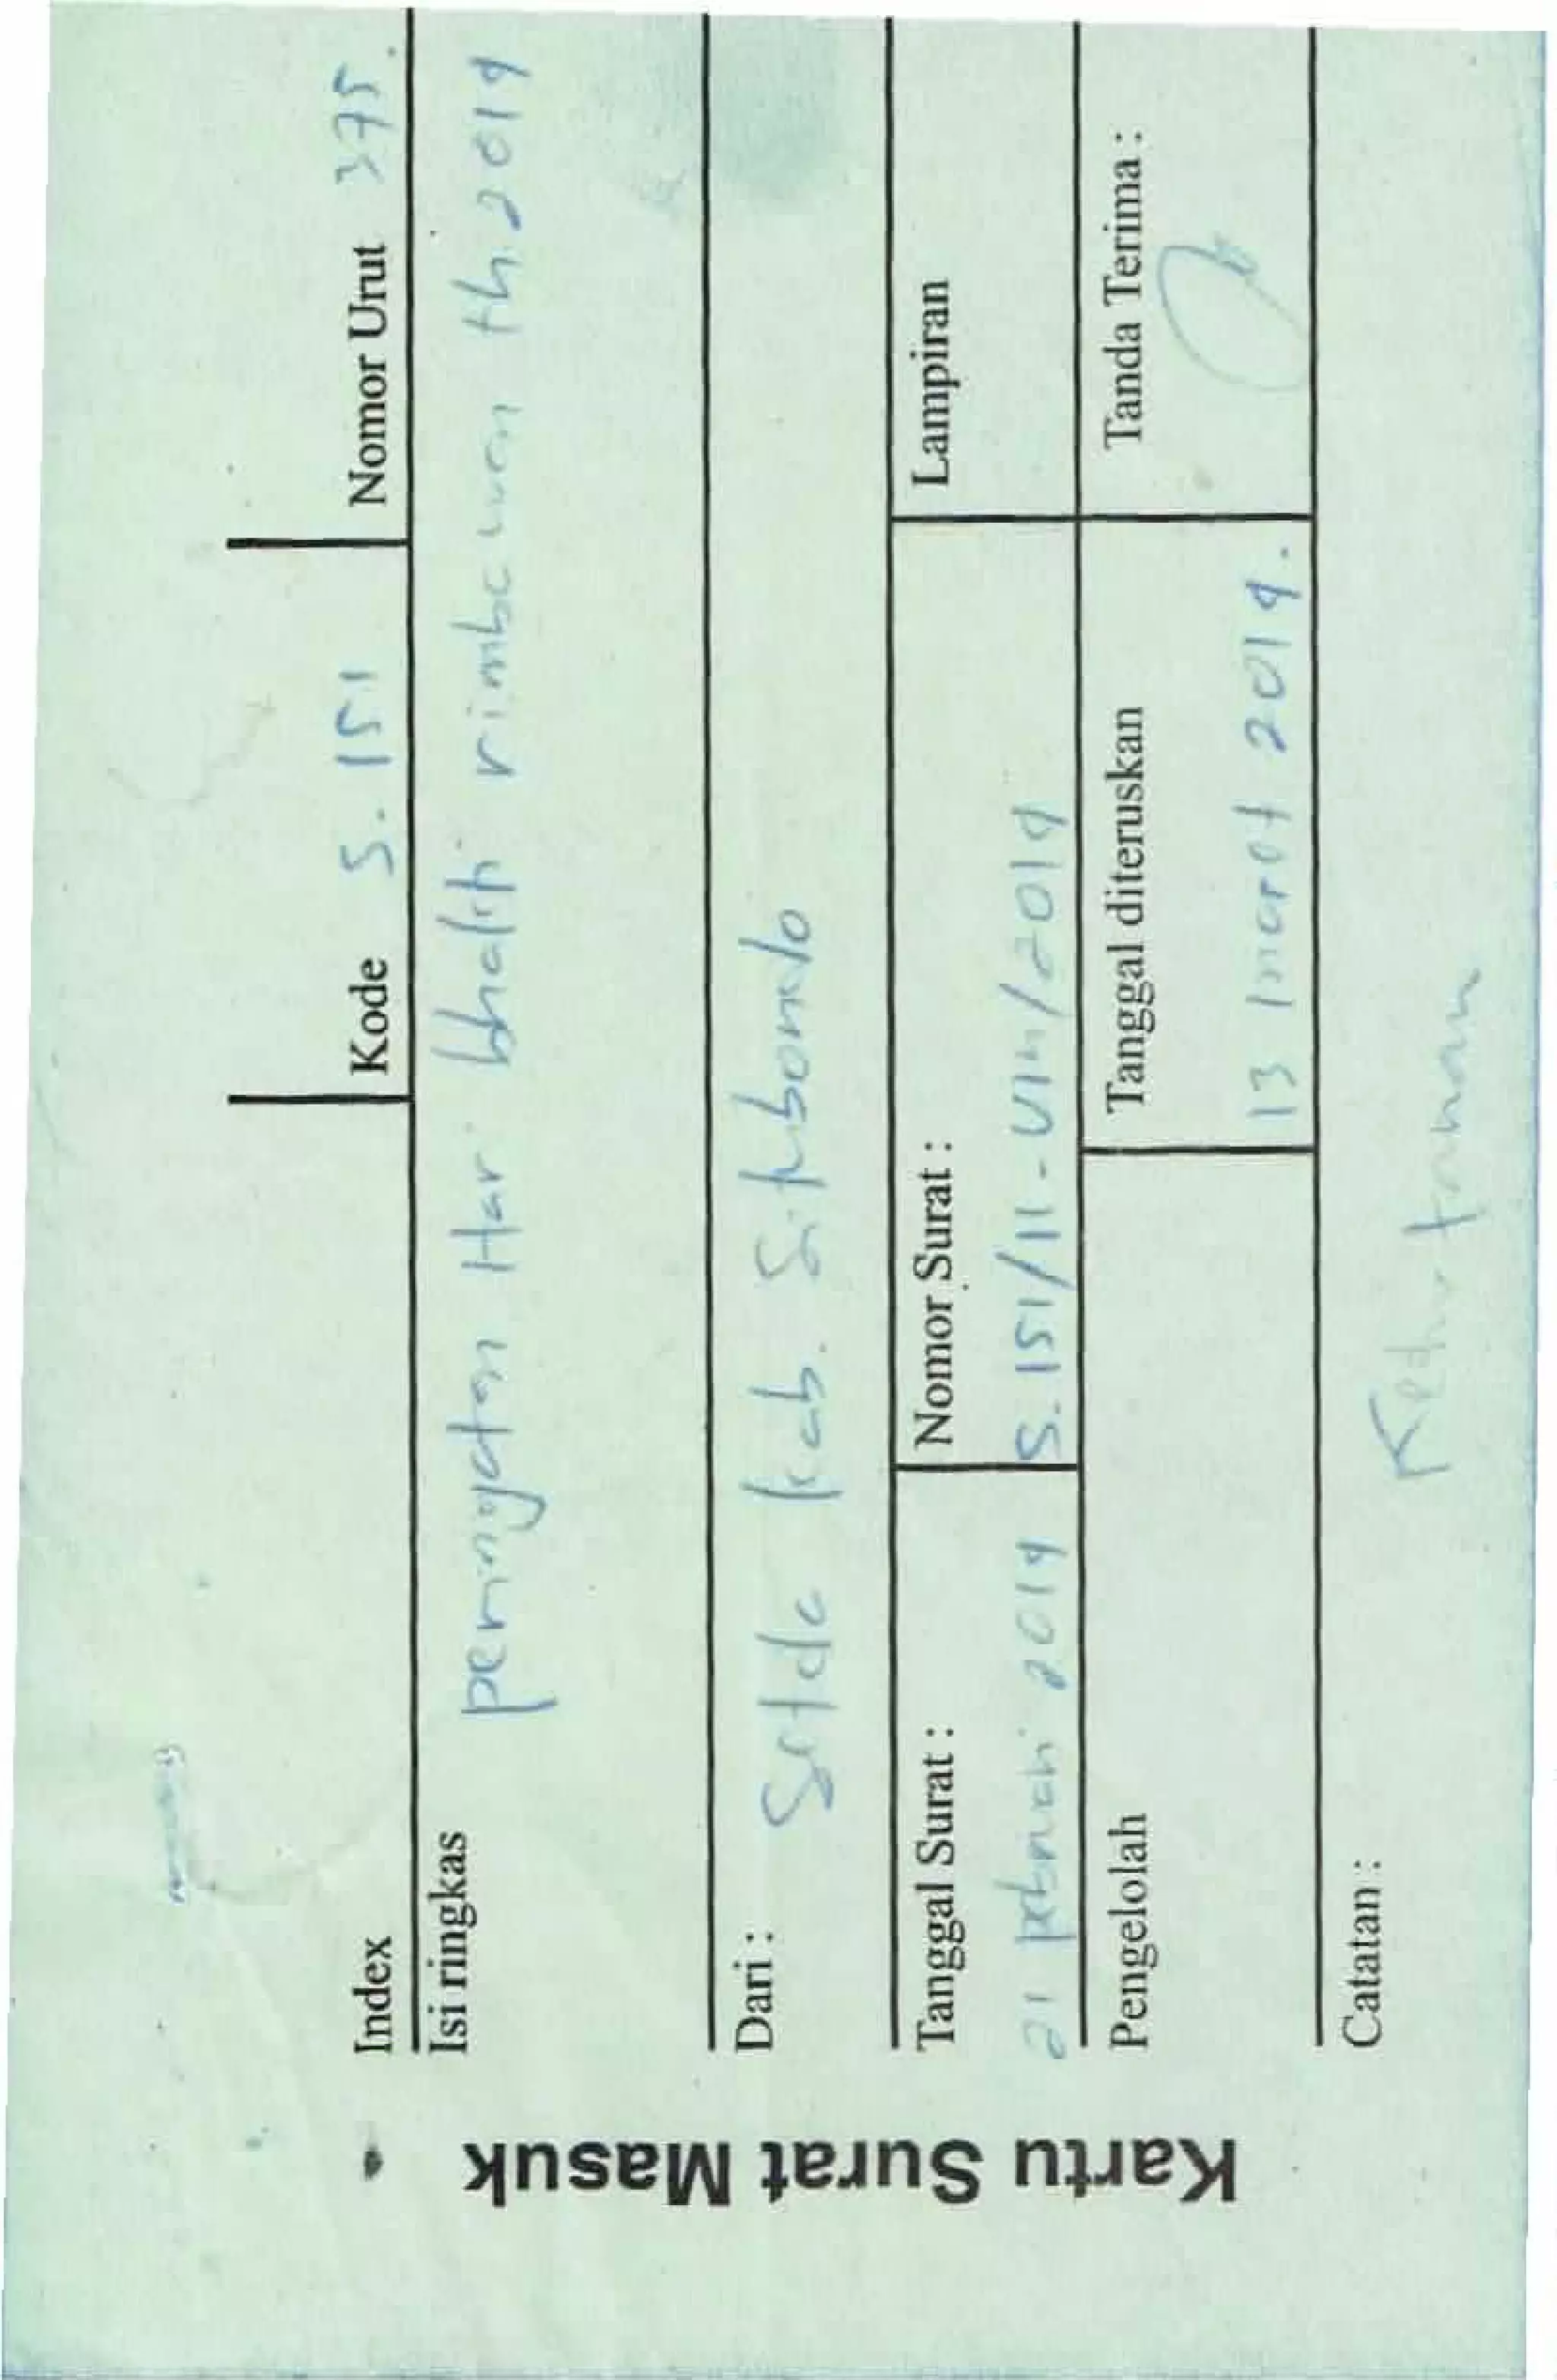 Kartu Surat Masuk
Index
Kode S. 151
Nomor Urut 375.
Isi ringkas
peringatan Hari bhakti rimbawan th. 2019
Dari :
Setda kab. Situbondo
Tanggal Surat :
21 pebruari 2019
Nomor Surat :
S. 151/11-VIII/2019
Lampiran
Pengelolah
Tanggal diteruskan
13 maret 2019.
Tanda Terima :
Catatan :